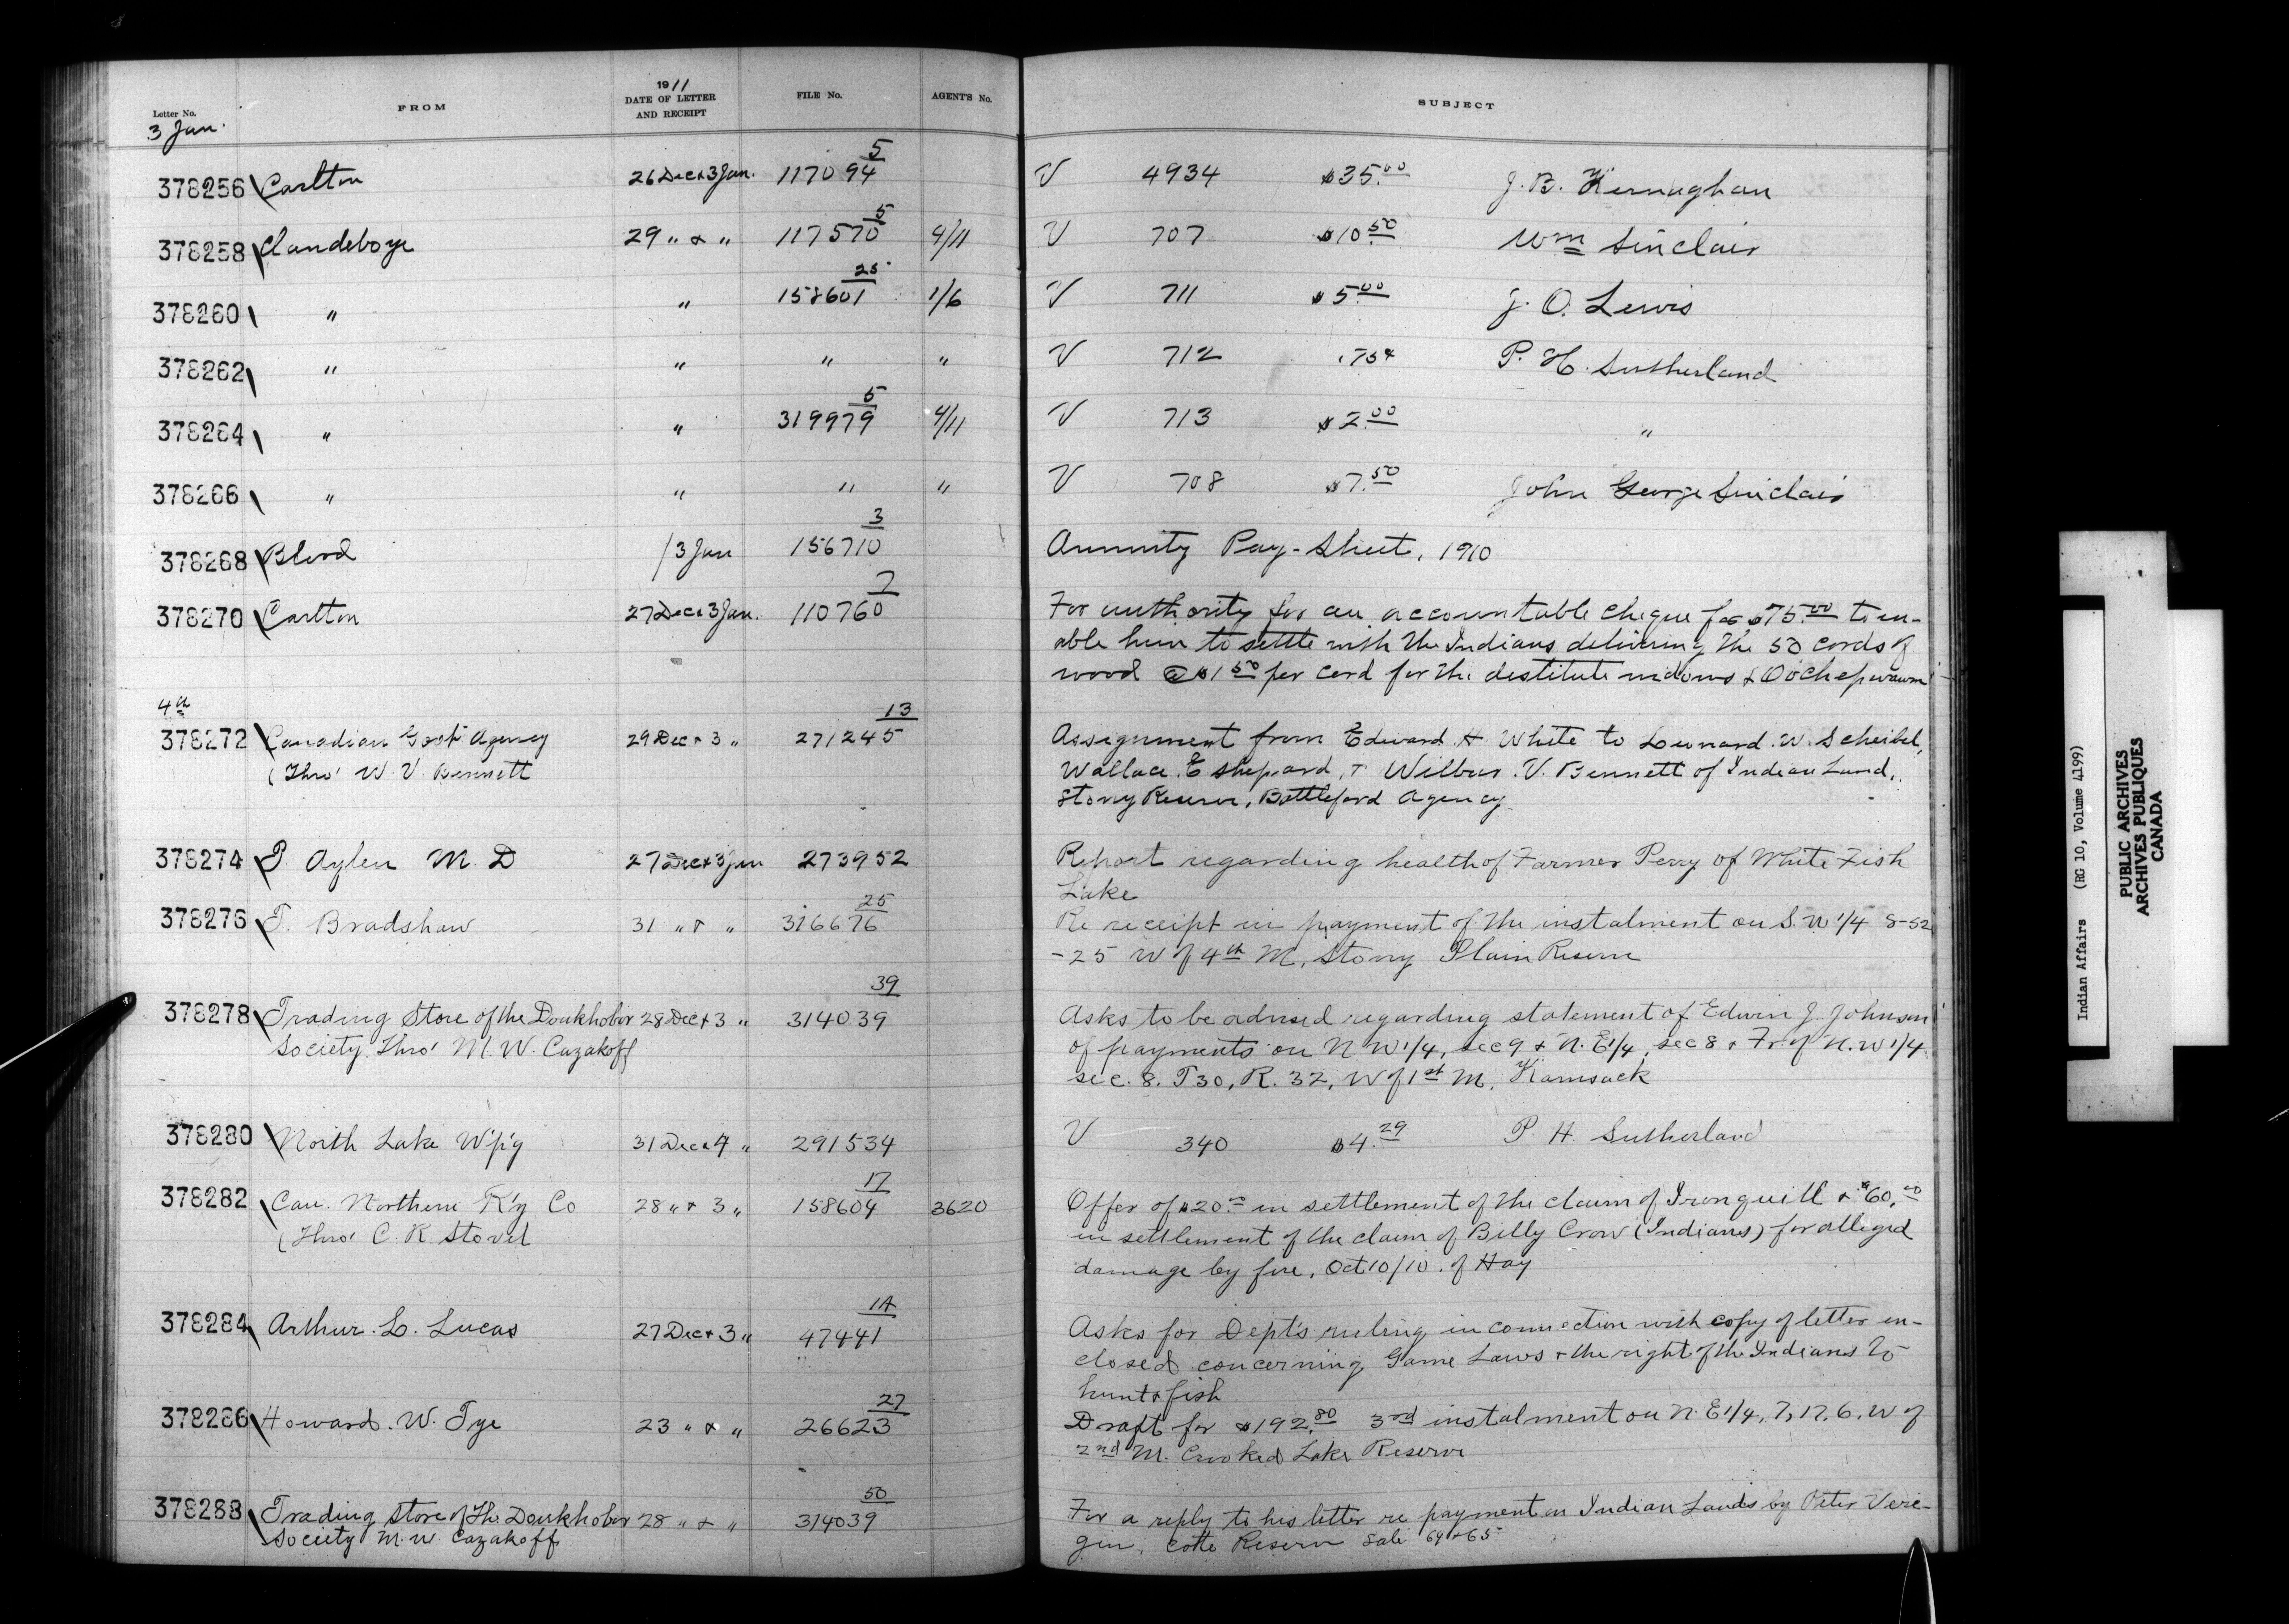 1911
Letter No. FROM DATE OF LETTER AND RECEIPT FILE No. AGENT'S No. SUBJECT
3 Jan.
5
378256 Carlton 26 Dec & 3 Jan. 117094 V 4934 $35.00 J. B. Kernaghan
5
378258 Clandeboye 29 " & " 117570 4/11 V 707 $10.50 Wm Sinclair
25
378260 " " 158601 1/6 V 711 $5.00 J. O. Lewis
378262 " " " " V 712 .75¢ P. H. Sutherland
5
378264 " " 319979 4/11 V 713 $2.00 "
378266 " " " " V 708 $7.50 John George Sinclair
3
378268 Blood /3 Jan 156710 Annuity Pay-Sheet, 1910
7
378270 Carlton 27 Dec & 3 Jan. 110760 For authority for an accountable cheque for $75.00 to en-
able him to settle with the Indians delivering the 50 cords of
wood @ $1.50 per cord for the destitute widows &
4th
13
378272 Canadian Govt Agency 29 Dec & 3 " 271245 Assignment from Edward H White to Leonard. W. Scheibel,
(Thro' W. V. Bennett Wallace. E Sheppard, & Wilbur. V. Bennett of Indian Land,
Stony Reserve, Battleford Agency
378274 P. Aylen M. D 27 Dec & 3 Jan 273952 Report regarding health of Farmer Perry of White Fish
Lake
25
378276 T. Bradshaw 31 " & " 316676 Re receipt in payment of the instalment on S. W 1/4 8-52
-25 W of 4th M, Stony Plain Reserve
39
378278 Trading Store of the Doukhobor 28 Dec & 3 " 314039 Asks to be advised regarding statement of Edwin J. Johnson
Society Thro' M. W. Cazakoff of payments on N W 1/4, sec 9 & N. E 1/4, sec 8 & Fr of N. W 1/4
sec. 8. T 30, R. 32, W of 1st M, Kamsack
378280 North Lake W'p'g 31 Dec & 4 " 291534 V 340 $4.29 P. H. Sutherland
17
378282 Can. Northern R'y Co 28 " & 3 " 158604 3620 Offer of $20.00 in settlement of the claim of Ironquill & $60.00
(Thro' C. R. Stovel in settlement of the claim of Billy Crow (Indians) for alleged
damage by fire, Oct 10/10. of Hay
1A
378284 Arthur. L. Lucas 27 Dec & 3 " 47441 Asks for Dept's ruling in connection with copy of letter en-
closed concerning Game Laws & the right of the Indians to
hunt & fish
27
378286 Howard. W. Tye 23 " & " 26623 Draft for $192.80 3rd instalment on N. E 1/4, 7, 17, 6, W of
2nd M. Crooked Lake Reserve
50
378288 Trading Store of the Doukhobor 28 " & " 314039 For a reply to his letter re payment on Indian Lands by Peter Vere-
Society M. W. Cazakoff gin. Cote Reserve Sale 64 & 65
Indian Affairs (RG 10, Volume 4199)
PUBLIC ARCHIVES
ARCHIVES PUBLIQUES
CANADA